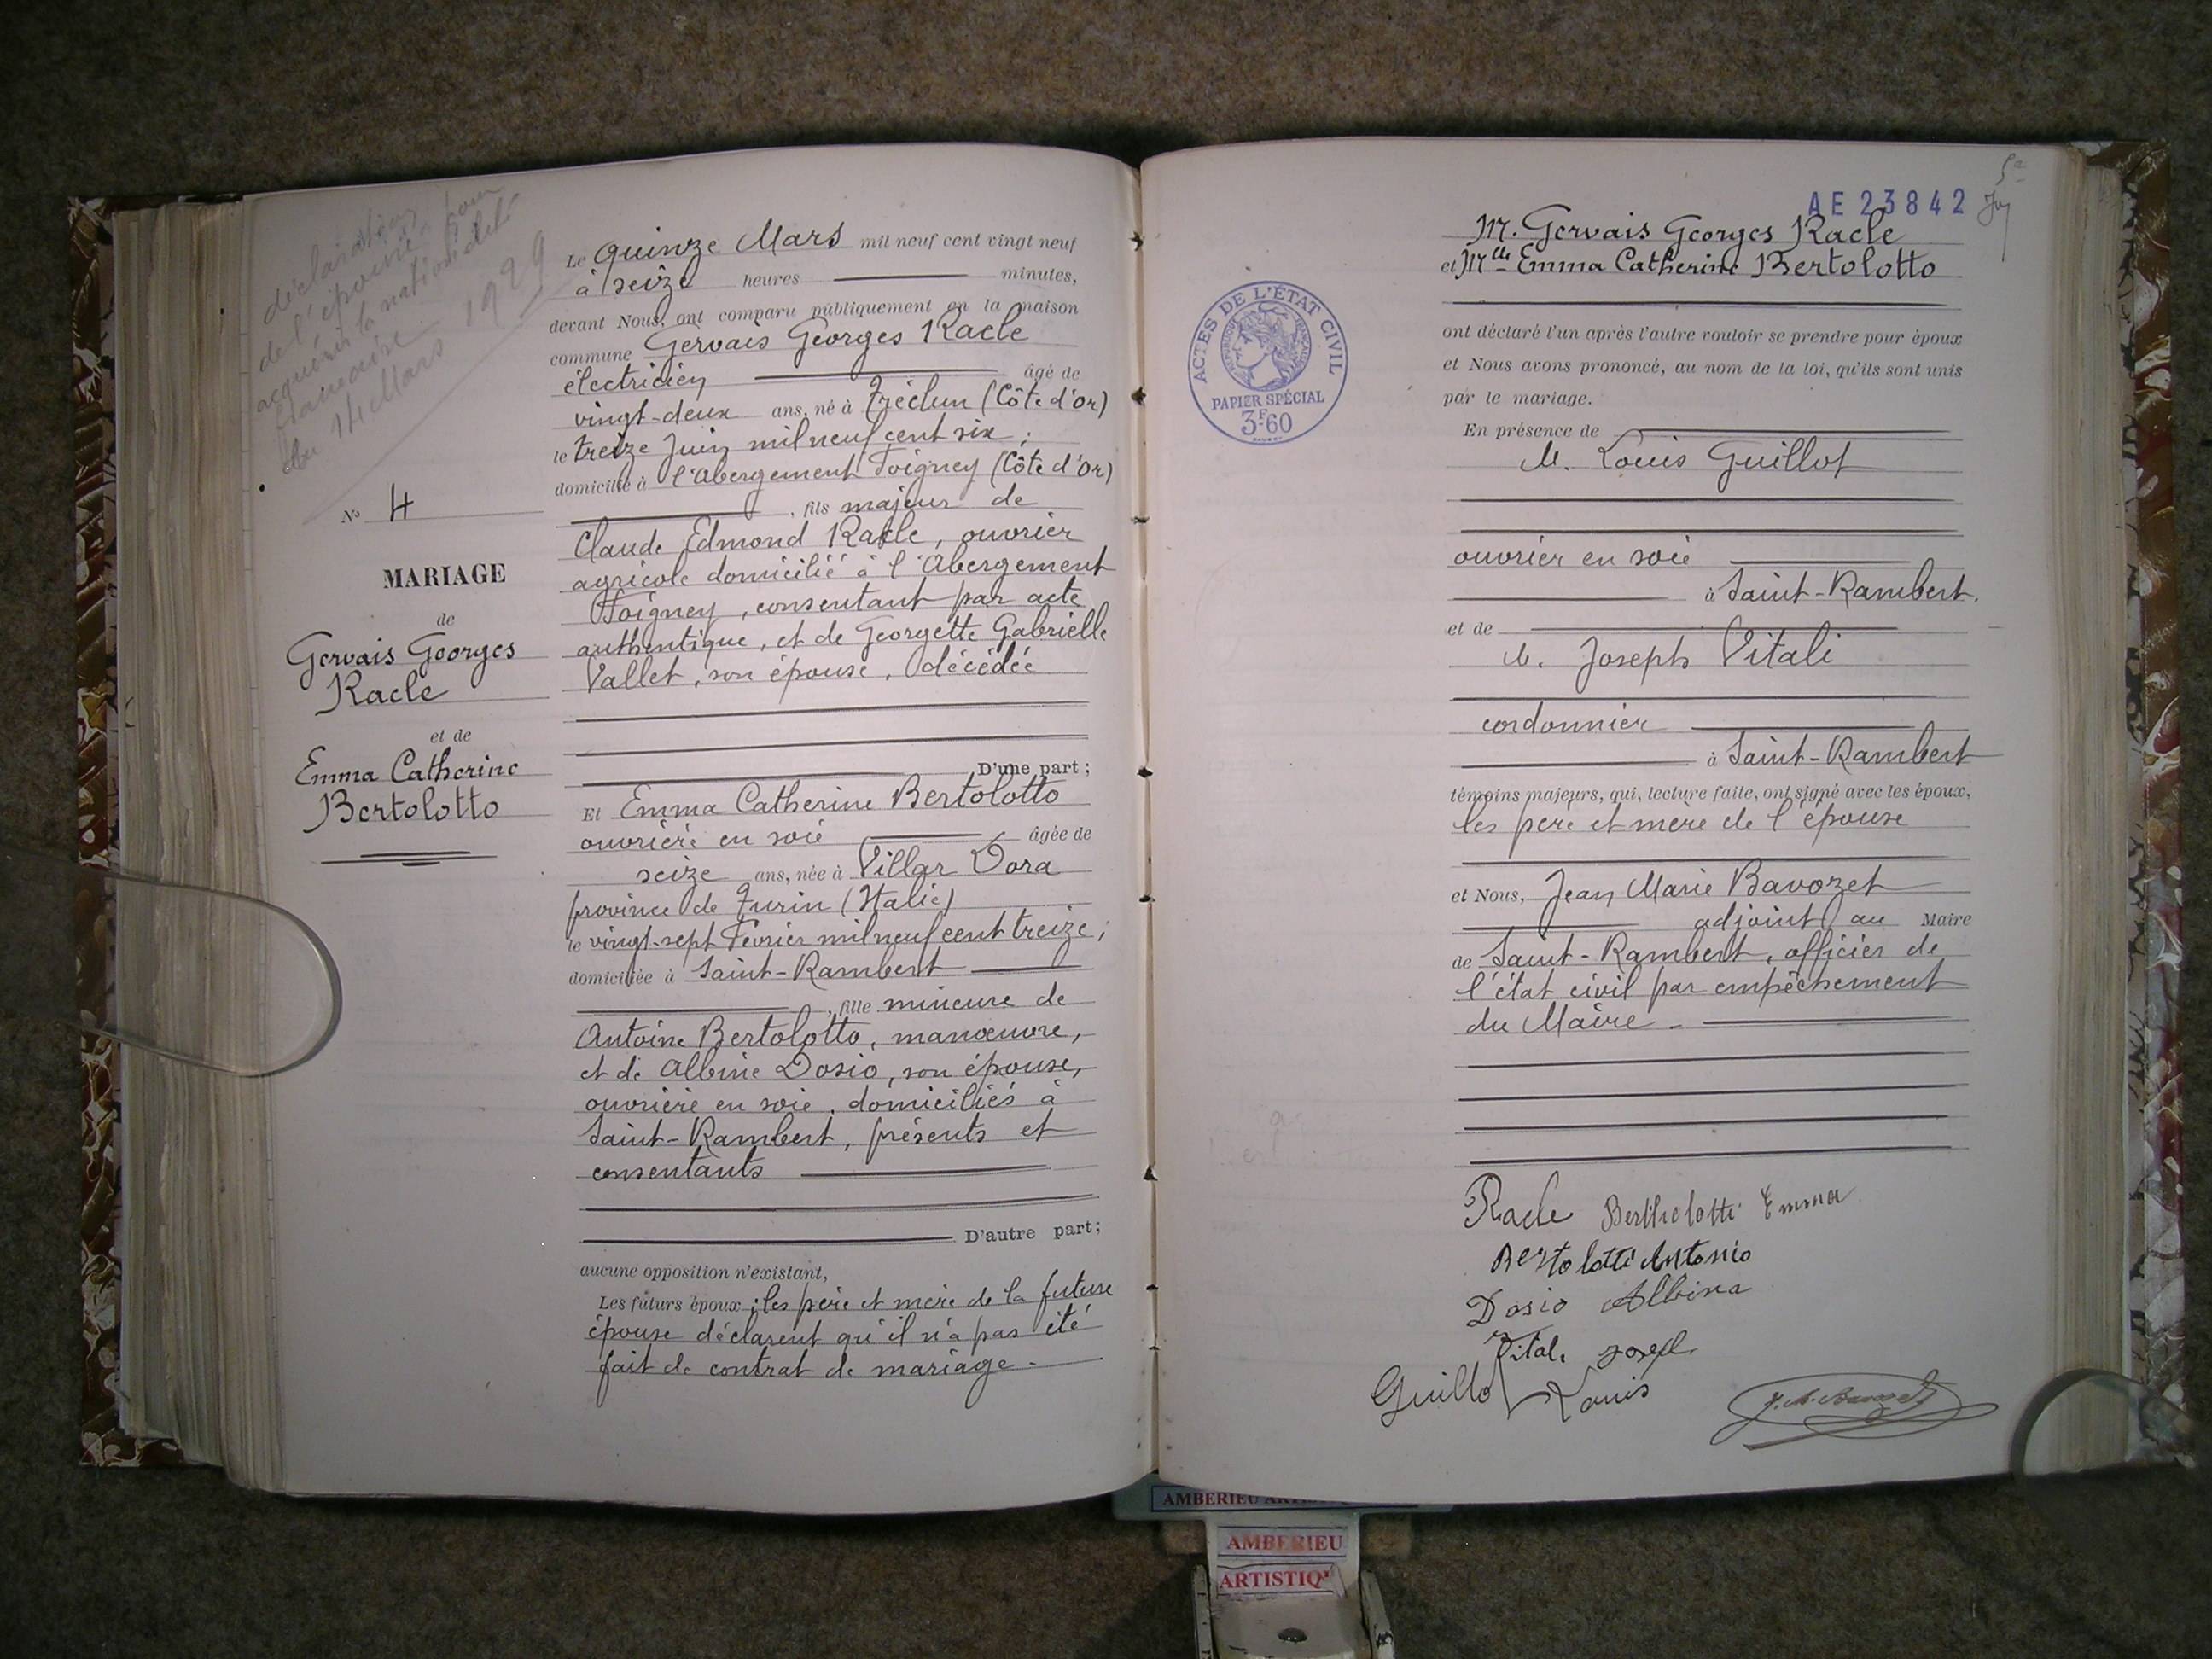 déclaration
de l'épouse pour
acquérir la nationalité
française
du 14 Mars 1929
No 4
MARIAGE
de
Gervais Georges
Racle
et de
Emma Catherine
Bertolotto
Le quinze Mars mil neuf cent vingt neuf
à seize heures minutes,
devant Nous, ont comparu publiquement en la maison
commune Gervais Georges Racle
électricien âgé de
vingt-deux ans, né à Tréclun (Côte d'or)
le treize Juin mil neuf cent six ;
domicilié à l'Abergement Foigney (Côte d'or)
, fils majeur de
Claude Edmond Racle, ouvrier
agricole domicilié à l'Abergement
Foigney, consentant par acte
authentique, et de Georgette Gabrielle
Vallet, son épouse, décédée
D'une part ;
Et Emma Catherine Bertolotto
ouvrière en soie âgée de
seize ans, née à Villar Dora
province de Turin (Italie)
le vingt-sept Février mil neuf cent treize ;
domiciliée à Saint-Rambert
, fille mineure de
Antoine Bertolotto, manœuvre,
et de Albine Dosio, son épouse,
ouvrière en soie, domiciliés à
Saint-Rambert, présents et
consentants
D'autre part ;
aucune opposition n'existant,
Les futurs époux ; les père et mère de la future
épouse déclarent qu'il n'a pas été
fait de contrat de mariage.
AE 23842
M. Gervais Georges Racle
et Mlle Emma Catherine Bertolotto
ACTES DE L'ÉTAT CIVIL
PAPIER SPÉCIAL
3F60
ont déclaré l'un après l'autre vouloir se prendre pour époux
et Nous avons prononcé, au nom de la loi, qu'ils sont unis
par le mariage.
En présence de
M. Louis Guillot
ouvrier en soie
à Saint-Rambert.
et de
M. Joseph Vitali
cordonnier
à Saint-Rambert
témoins majeurs, qui, lecture faite, ont signé avec les époux,
les père et mère de l'épouse
et Nous, Jean Marie Bavozet
adjoint au Maire
de Saint-Rambert, officier de
l'état civil par empêchement
du Maire.
Racle Bertholotti Emma
Bertolotti Antonio
Dosio Albina
Vitali
Guillot Louis
J. M. Bavozet
AMBERIEU
AMBERIEU
ARTISTIQ